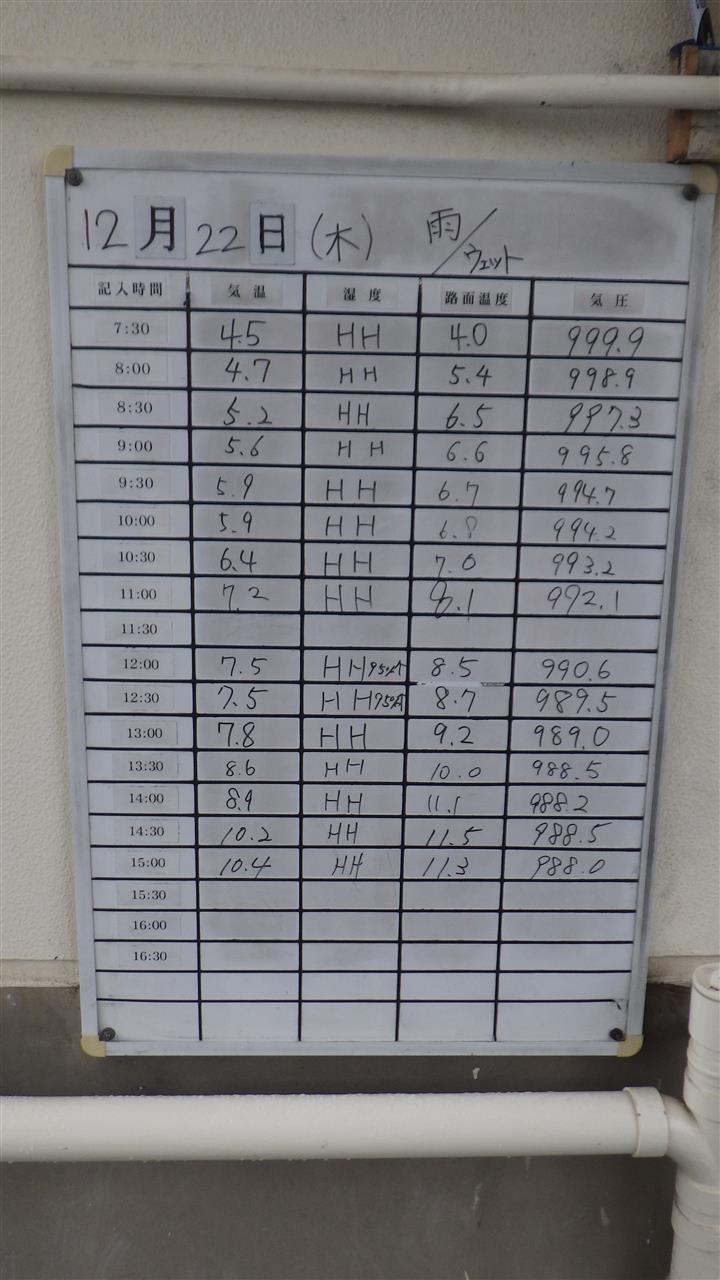 12月22日(木) 雨/ウェット
記入時間 気温 湿度 路面温度 気圧
7:30 4.5 HH 4.0 999.9
8:00 4.7 HH 5.4 998.9
8:30 5.2 HH 6.5 997.3
9:00 5.6 HH 6.6 995.8
9:30 5.9 HH 6.7 994.7
10:00 5.9 HH 6.8 994.2
10:30 6.4 HH 7.0 993.2
11:00 7.2 HH 8.1 992.1
11:30
12:00 7.5 HH 8.5 990.6
12:30 7.5 HH 8.7 989.5
13:00 7.8 HH 9.2 989.0
13:30 8.6 HH 10.0 988.5
14:00 8.9 HH 11.1 988.2
14:30 10.2 HH 11.5 988.5
15:00 10.4 HH 11.3 988.0
15:30
16:00
16:30